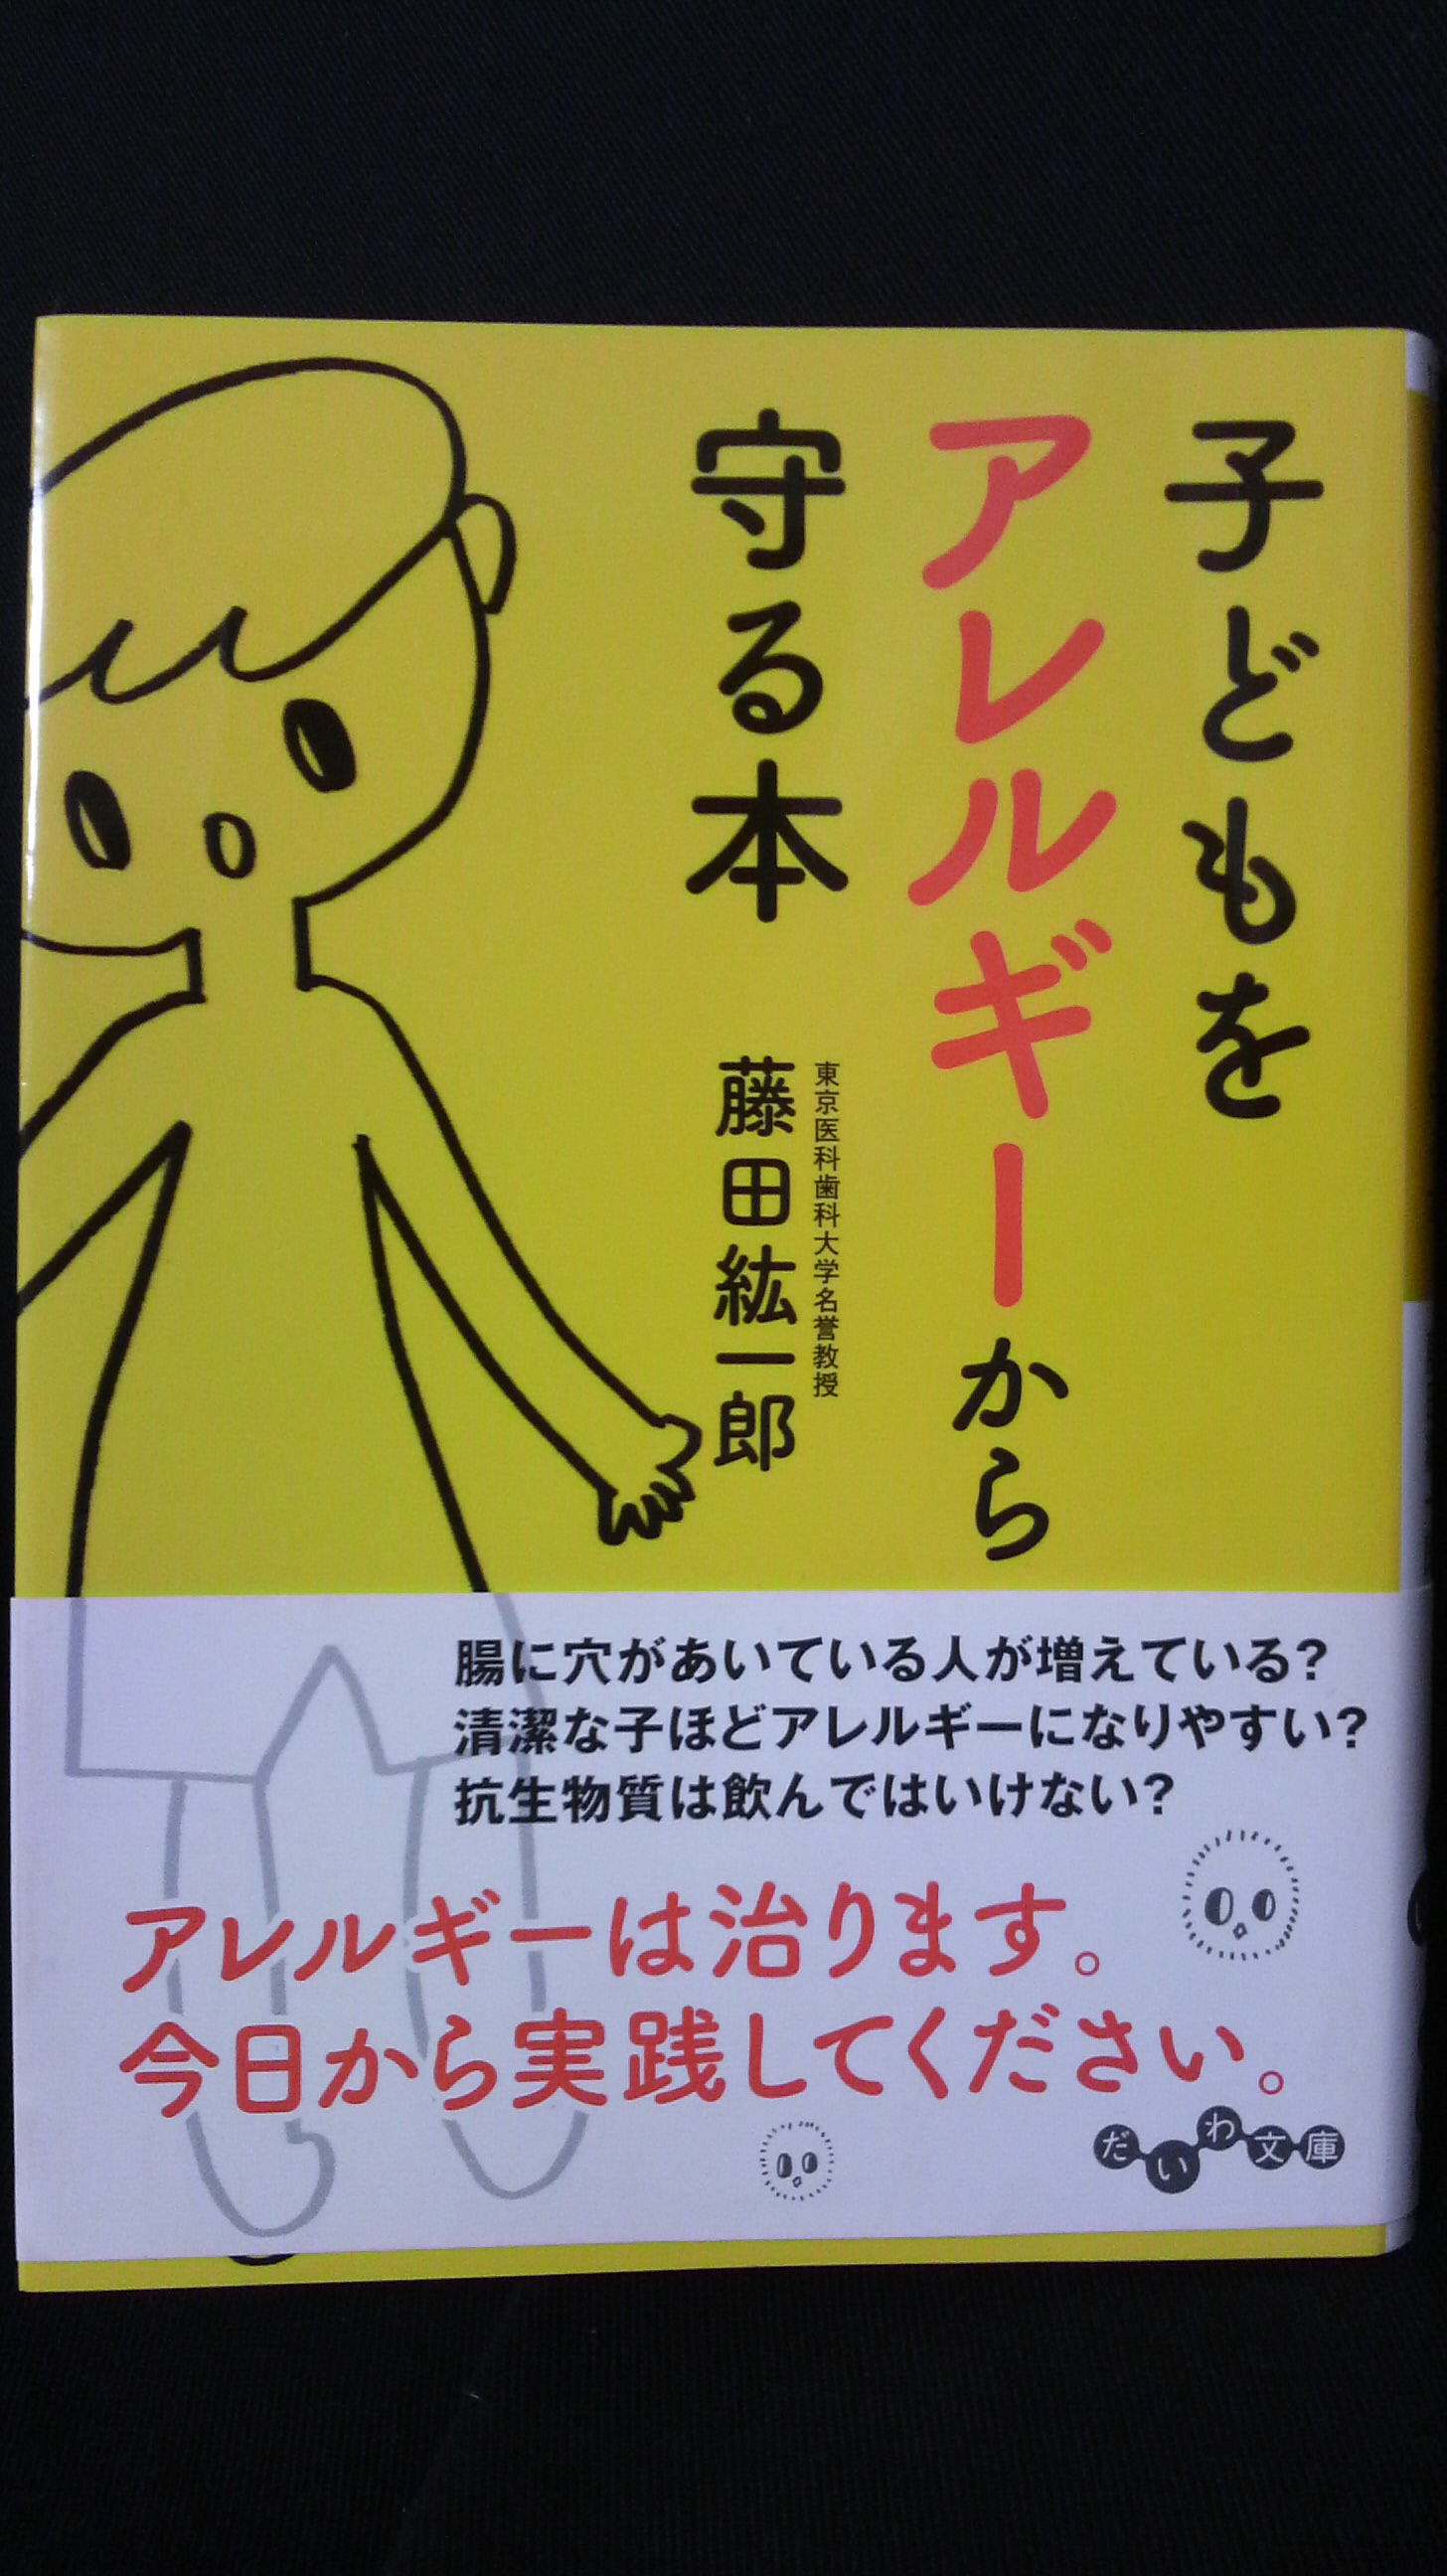 子どもを
アレルギーから
守る本
東京医科歯科大学名誉教授
藤田紘一郎
腸に穴があいている人が増えている?
清潔な子ほどアレルギーになりやすい?
抗生物質は飲んではいけない?
アレルギーは治ります。
今日から実践してください。
だいわ文庫